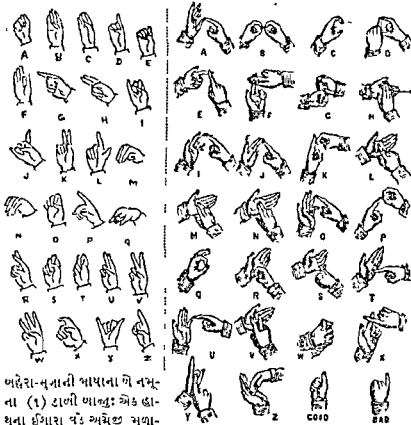 A B C D E
F G H I
J K L M
N O P Q
R S T U V
W X Y Z
બહેરા-મૂગાની ભાષાના બે નમૂ-
ના (૧) ડાબી બાજુ: એક હા-
થના ઈશારા વડે અંગ્રેજી મૂળા-
A B C D
E F G H
I J K L
M N O P
Q R S T
U V W X
Y Z GOOD BAD